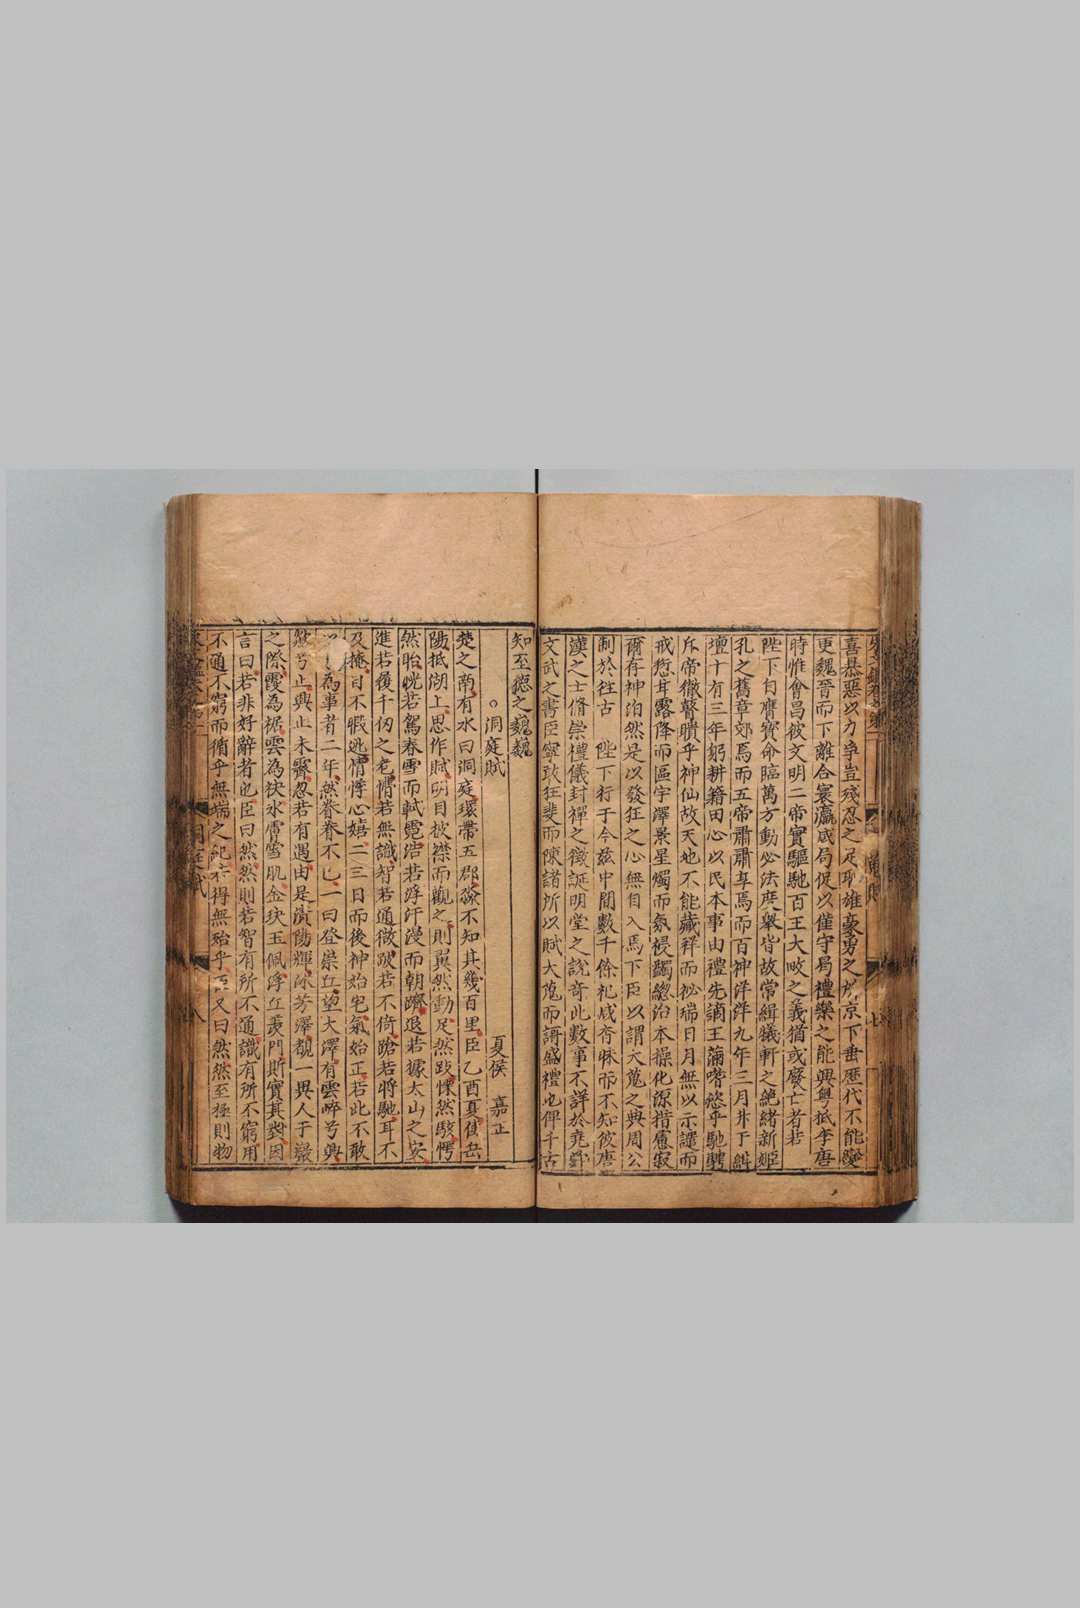 喜恭惡以力爭豈殘忍之足聇雄豪勇之於京下垂歷代不能
更魏晉而下離合寰瀛咸局促以僅守曷禮樂之能興粤抵李唐
時惟會昌彼文明二帝實驅馳百王大㕙之義猶或廢亡者若
陛下自膺寳命臨萬方動必法度舉皆故常緝犧軒之絶緒新姬
孔之舊章郊焉而五帝肅肅享焉而百神洋洋九年三月丼于
壇十有三年躬耕籍田心以民本事由禮先
斥帝徽 乎神仙故天地不能藏祥而祕瑞日月無以示謴而
戒悊甘露降而區宇澤景星燭而氛祲蠲總治本操化源措慮寂
爾存神泊然是以發狂之心無自入焉下臣以謂大蒐之典周公
制於往古 陛下行于今茲中間數千餘祀咸 不知彼唐
漢之士脩崇禮儀封禪之徵誕明堂之說奇此數事不詳於堯
文武之書臣寧敢狂斐而陳諸所以賦大蒐而謌盛禮也俾千古
知至德之巍巍
洞庭賦 夏侯 嘉正
楚之南有水曰洞庭環帶五郡淼不知其幾百里臣乙酉夏使岳
陽抵湖上思作賦明日披襟而觀之則翼然動足然跂慄然駭愕
然眙恍若駕春雪而軾霓浩若浮汗漫而朝躋退若據太山之安
進若履千仞之危懵若無識智若通微跛若不倚跄若將馳耳不
及掩目不暇逃情悸心嬉二三日而後神始宅氣始正若此不敢
為事者二年然眷眷不已一日登崇丘望大澤有雲崪兮興
兮止興止未霽忽若有遇由是 陽輝沐芳澤覩一異人于巖
之際霞為裾雲為袂氷膚雪肌金玦玉佩浮丘羨門斯實其對因
言曰若非好辭者也臣曰然然則若智有所不通識有所不窮用
不通不窮而循乎無端之紀若得無殆乎臣又曰然然至極則物
洞庭賦
八